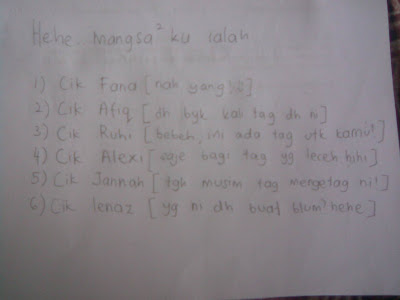 Hehe.. mangsa² ku ialah
1) Cik Fana [nah yang!!:)]
2) Cik Afiq [dh byk kali tag dh ni]
3) Cik Ruhi [bebeh, ini ada tag utk kamu!]
4) Cik Alexi [saje bagi tag yg leceh hihi]
5) Cik Jannah [tgh musim tag mengetag ni!]
6) Cik lenaz [yg ni dh buat blum? hehe]